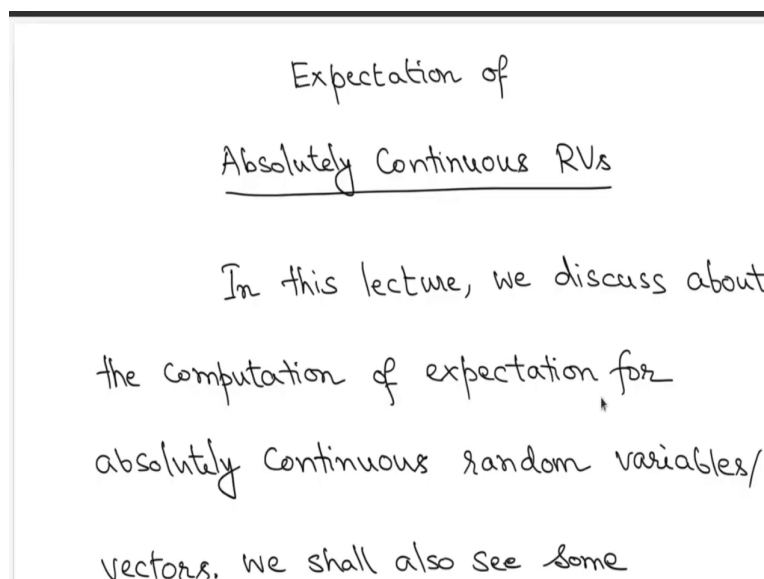 Expectation of
Absolutely Continuous RVs
In this lecture, we discuss about
the computation of expectation for
absolutely continuous random variables/
vectors. We shall also see some